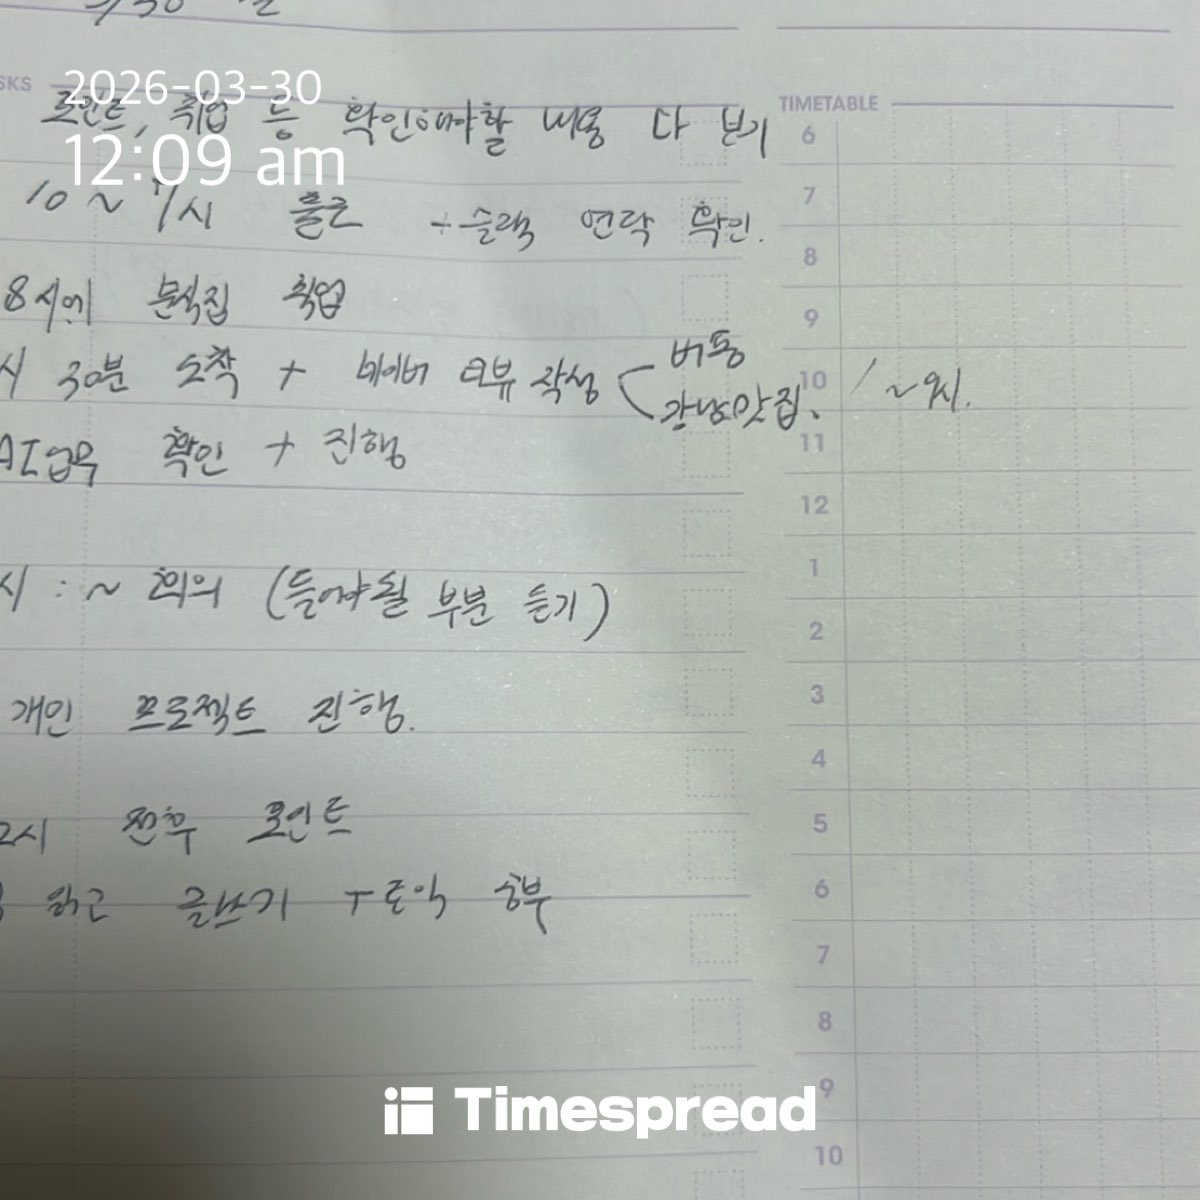 3/30 일
TASKS
2026-03-30
포인트, 취업 등 확인해야할 내용 다 보기
12:09 am
10~7시 출근 + 슬랙 연락 확인.
8시에 분식집 취업
시 30분 도착 + 네이버 리뷰 작성 버퉁
강남맛집. / ~9시.
AI업무 확인 + 진행
시 : ~ 회의 (들어야 될 부분 듣기)
개인 프로젝트 진행.
2시 전후 포인트
읽고 글쓰기 + 토익 공부
TIMETABLE
6
7
8
9
10
11
12
1
2
3
4
5
6
7
8
9
10
Timespread